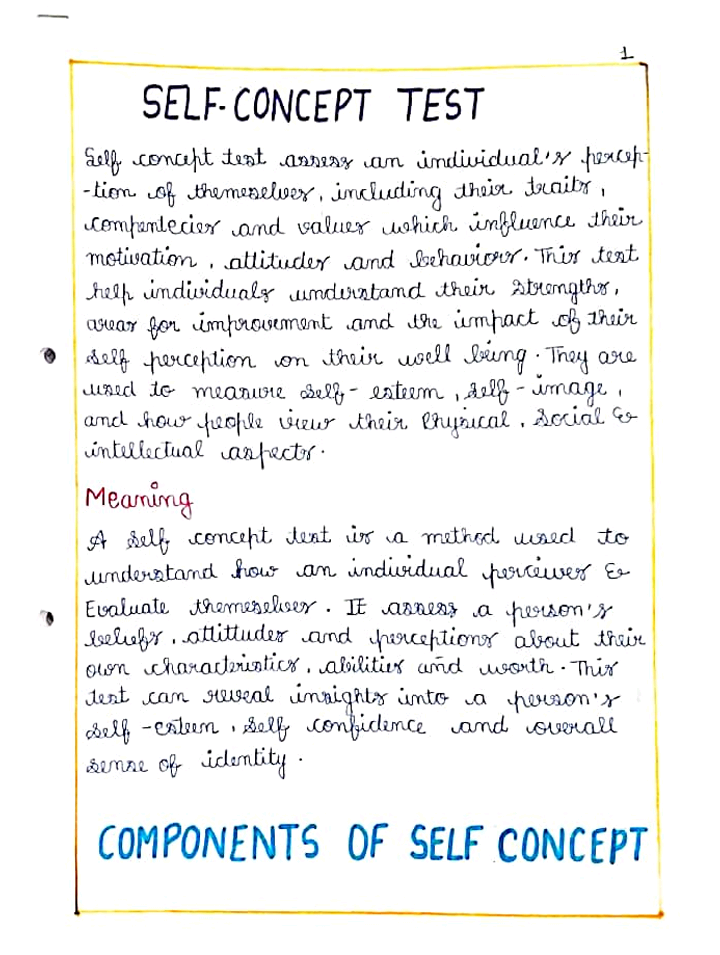 1
SELF-CONCEPT TEST
Self concept test assess an individual's percep-
-tion of themeselves, including their traits,
compentecies and values which influence their
motivation, attitudes and behaviour. This test
help individuals understand their strengths,
areas for improvement and the impact of their
self perception on their well being. They are
used to measure self-esteem, self-image,
and how people view their Physical, Social &
intellectual aspects.
Meaning
A self concept test is a method used to
understand how an individual perceives &
Evaluate themeselves. It assess a person's
beliefs, attittudes and perceptions about their
own characteristics, abilities and worth. This
test can reveal insights into a person's
self-esteem, self confidence and overall
sense of identity.
COMPONENTS OF SELF CONCEPT